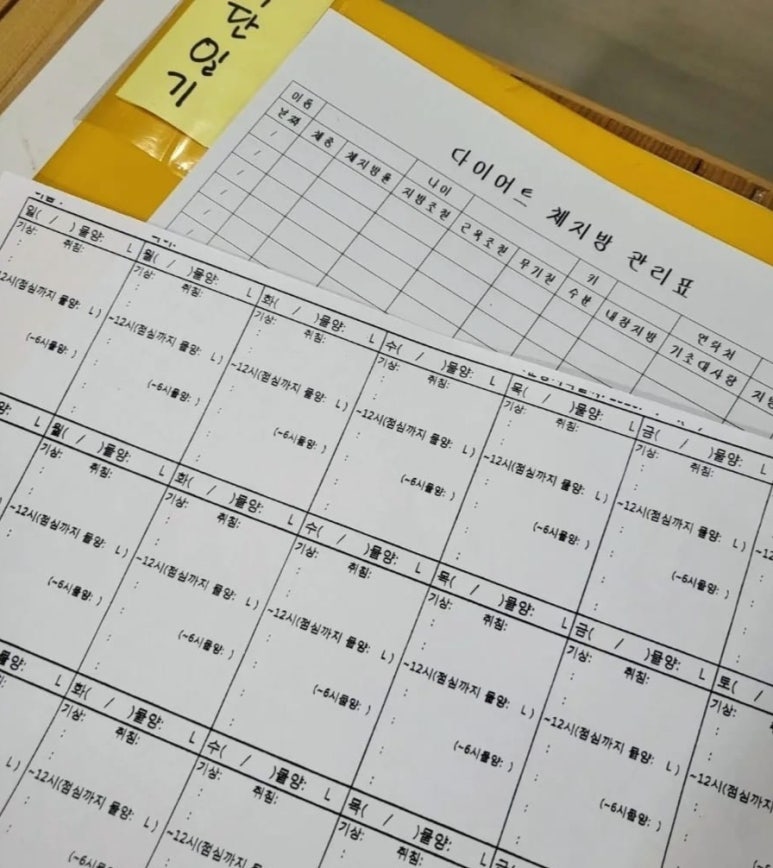 단
일
기
다이어트 체지방 관리표
이름 나이 키 연락처
날짜 체중 체지방율 지방조절 근육조절 무기질 수분 내장지방 기초대사량
/
/
/
/
/
일( / )물양: L 월( / )물양: L 화( / )물양: L 수( / )물양: L 목( / )물양: L 금( / )물양: L
기상: 취침: 기상: 취침: 기상: 취침: 기상: 취침: 기상: 취침: 기상: 취침:
12시(점심까지 물양: L) ~12시(점심까지 물양: L) ~12시(점심까지 물양: L) ~12시(점심까지 물양: L) ~12시(점심까지 물양: L) ~12시(점심까지 물양: L) ~12
(~6시물양: ) (~6시물양: ) (~6시물양: ) (~6시물양: ) (~6시물양: ) (~6시물양: )
양: L 월( / )물양: L 화( / )물양: L 수( / )물양: L 목( / )물양: L 금( / )물양: L 토( /
기상: 취침: 기상: 취침: 기상: 취침: 기상: 취침: 기상: 취침: 기상:
~12시(점심까지 물양: L) ~12시(점심까지 물양: L) ~12시(점심까지 물양: L) ~12시(점심까지 물양: L) ~12시(점심까지 물양: L) ~12시(점심까지
(~6시물양: ) (~6시물양: ) (~6시물양: ) (~6시물양: ) (~6시물양: )
물양: L 화( / )물양: L 수( / )물양: L 목( / )물양: L 금(
기상: 취침: 기상: 취침: 기상: 취침:
L) ~12시(점심까지 물양: L) ~12시(점심까지 물양:
(~6시